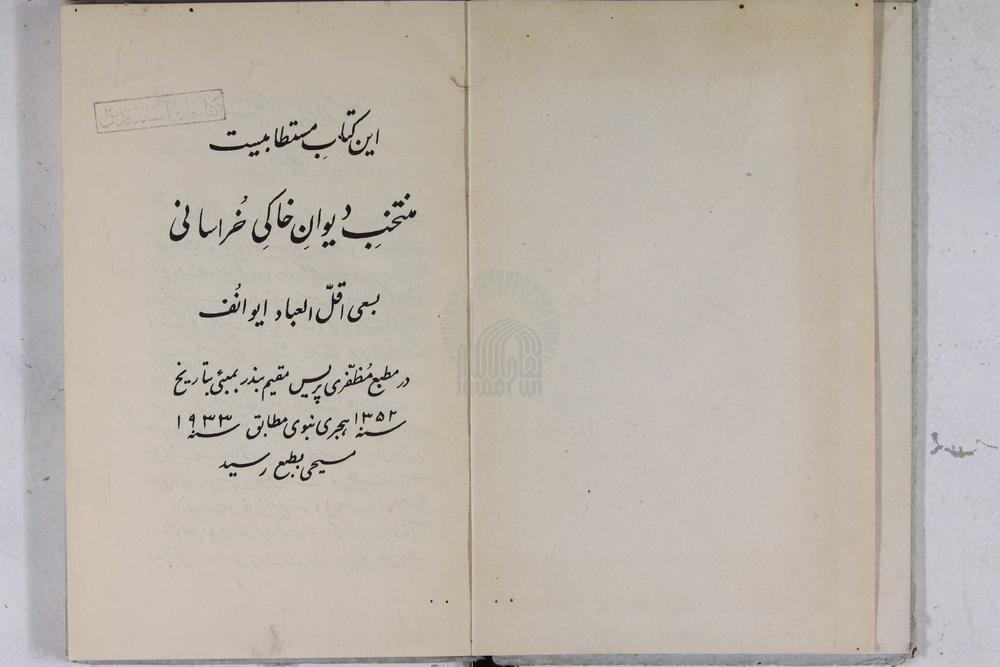 کتابخانه آستان قدس
این کتابِ مستطابیست
منتخبِ دیوانِ خاکیِ خُراسانی
بسعی اقلّ العباد ایوانُف
در مطبع مُظفّری پریس مقیم بندر بمبئی بتاریخ
سنه ۱۳۵۲ هجری نبوی مطابق سنه ۱۹۳۳
مسیحی بطبع رسید